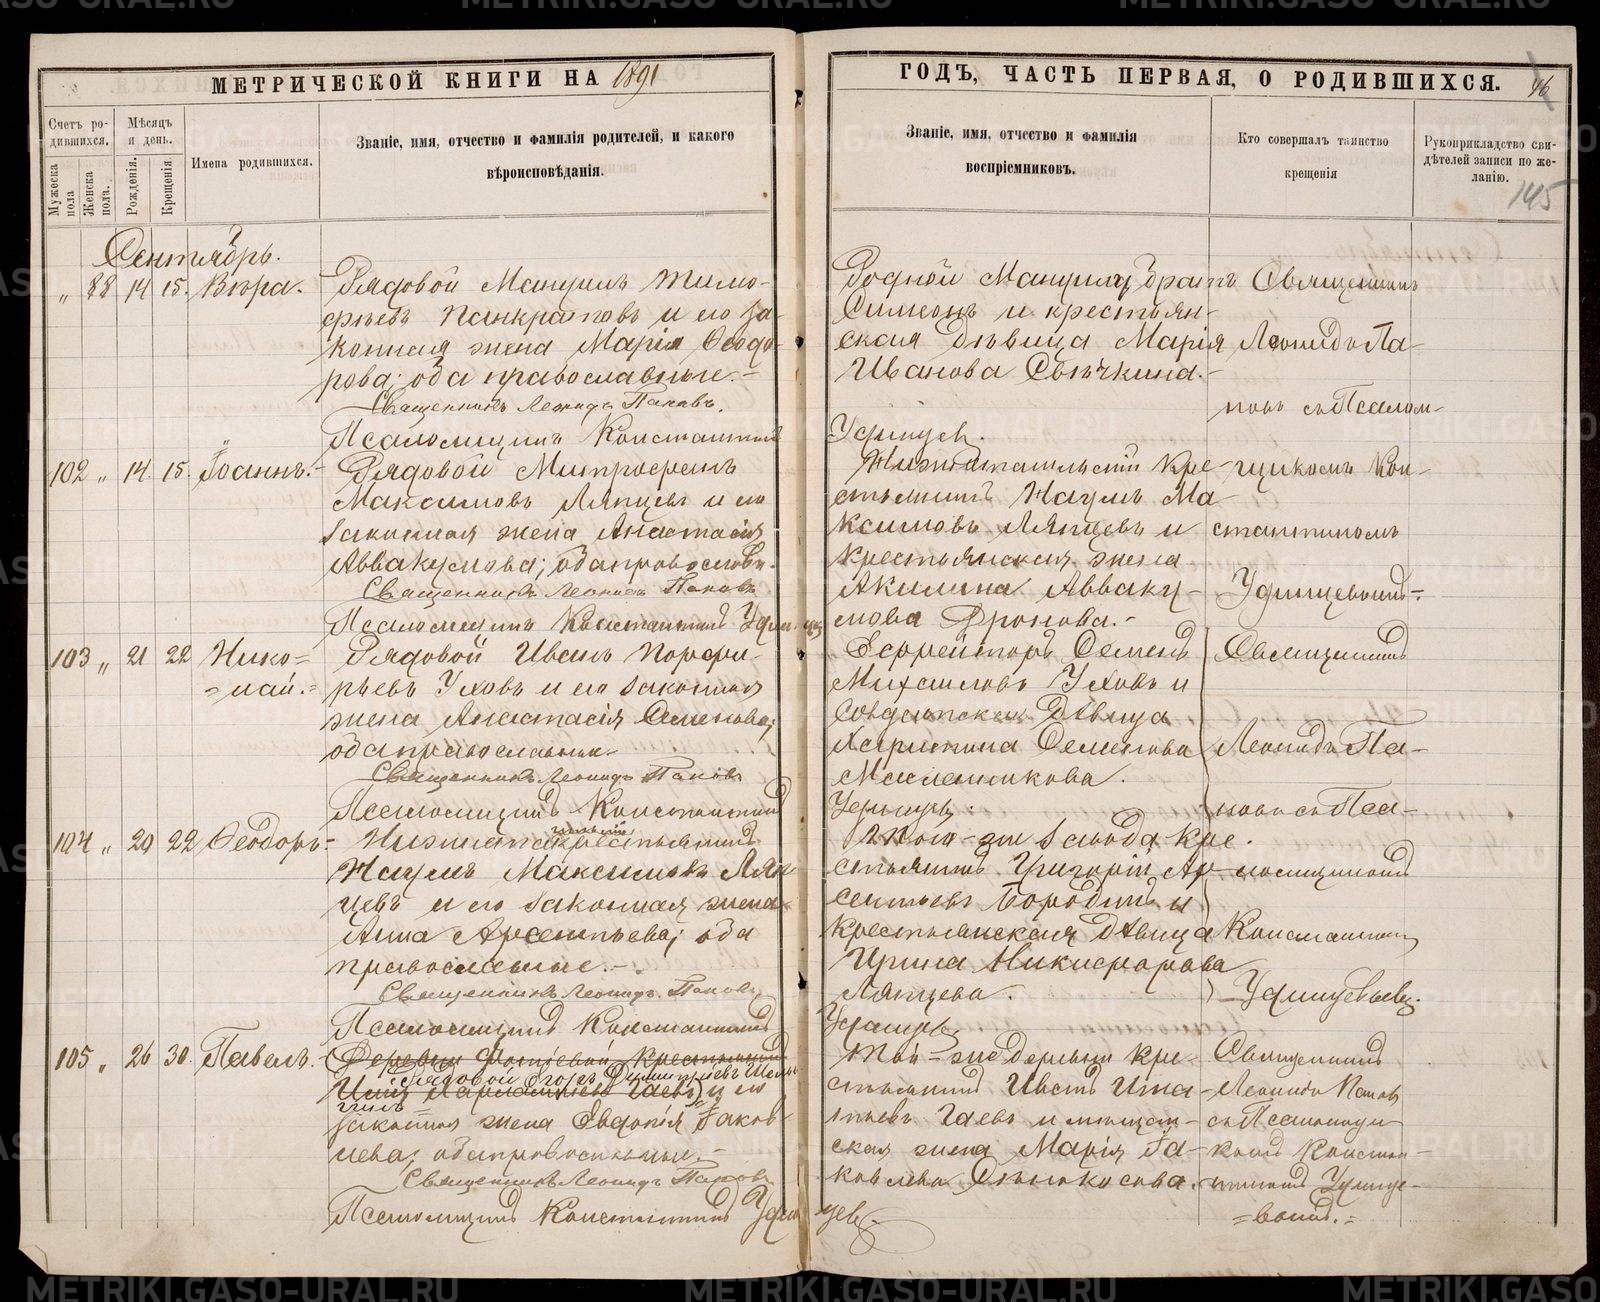 МЕТРИЧЕСКОЙ КНИГИ НА 1891
ГОДЪ, ЧАСТЬ ПЕРВАЯ, О РОДИВШИХСЯ.
46
145
Счетъ ро-
дившихся.
Мужеска пола
Женска пола.
Мѣсяцъ
и день.
Рожденія.
Крещенія
Имена родившихся.
Званіе, имя, отчество и фамилія родителей, и какого
вѣроисповѣданія.
Званіе, имя, отчество и фамилія
воспріемниковъ.
Кто совершалъ таинство
крещенія
Рукоприкладство сви-
дѣтелей записи по же-
ланію.
Сентябрь.
„ 88 14 15. Вѣра.
Рядовой Мануилъ Тимо-
фѣевъ Панкратовъ и его за-
конная жена Марія Ѳеодо-
рова; оба православные.-
Священникъ Леонидъ Паповъ.
Псаломщикъ Константинъ
Удинцевъ.
Родной Мануилу братъ
Симеонъ и крестьян-
ская дѣвица Марія
Иванова Свѣчкина.-
Священникъ
Леонидъ Па-
повъ съ Псалом-
щикомъ Кон-
стантиномъ
Удинцевымъ.-
102 „ 14. 15. Іоаннъ.-
Рядовой Митрофанъ
Максимовъ Ляпцевъ и его
законная жена Анастасія
Аввакумова; оба православн.
Священникъ Леонидъ Паповъ
Псаломщикъ Константинъ Удинцевъ
крестьянская жена
Акилина Авваку-
мова Фронова.-
103 „ 21 22 Нико=
=лай.=
Рядовой Иванъ Порфи-
рьевъ Уховъ и его законная
жена Анастасія Семенова;
оба православные-
Священникъ Леонидъ Паповъ
Псаломщикъ Константинъ
Удинцевъ.
Ефрейторъ Семенъ
Михаиловъ Уховъ и
Солдатская дѣвица
Екатерина Семенова
Масленникова.
Священникъ
Леонидъ Па-
повъ съ Пса-
ломщикомъ
Константин
Удинцевымъ.
104 „ 20 22 Ѳеодоръ-
крестьянинъ
Наумъ Максимовъ Ляп-
цевъ и его законная жена
Анна Арсентьева; оба
православные.-
Священникъ Леонидъ Паповъ
Псаломщикъ Константинъ
Удинцевъ
Того-же завода кре-
стьянинъ Григорій Ар-
сентьевъ Бородинъ и
крестьянская дѣвица
Ирина Никифорова
Ляпцева.
105 „ 26 30. Павелъ.-
законная жена Евдокія Іаков-
лева; оба православные.-
Священникъ Леонидъ Паповъ
Псаломщикъ Константинъ Удин
цевъ.
Той-же деревни кре-
стьянинъ
Гаевъ и мѣщан-
ская жена Марія Іа-
ковлева Сѣнокосова.
Священникъ
Леонидъ Паповъ
съ Псаломщи
комъ Констан-
тиномъ Удинце-
=вымъ.=
METRIKI.GASO-URAL.RU